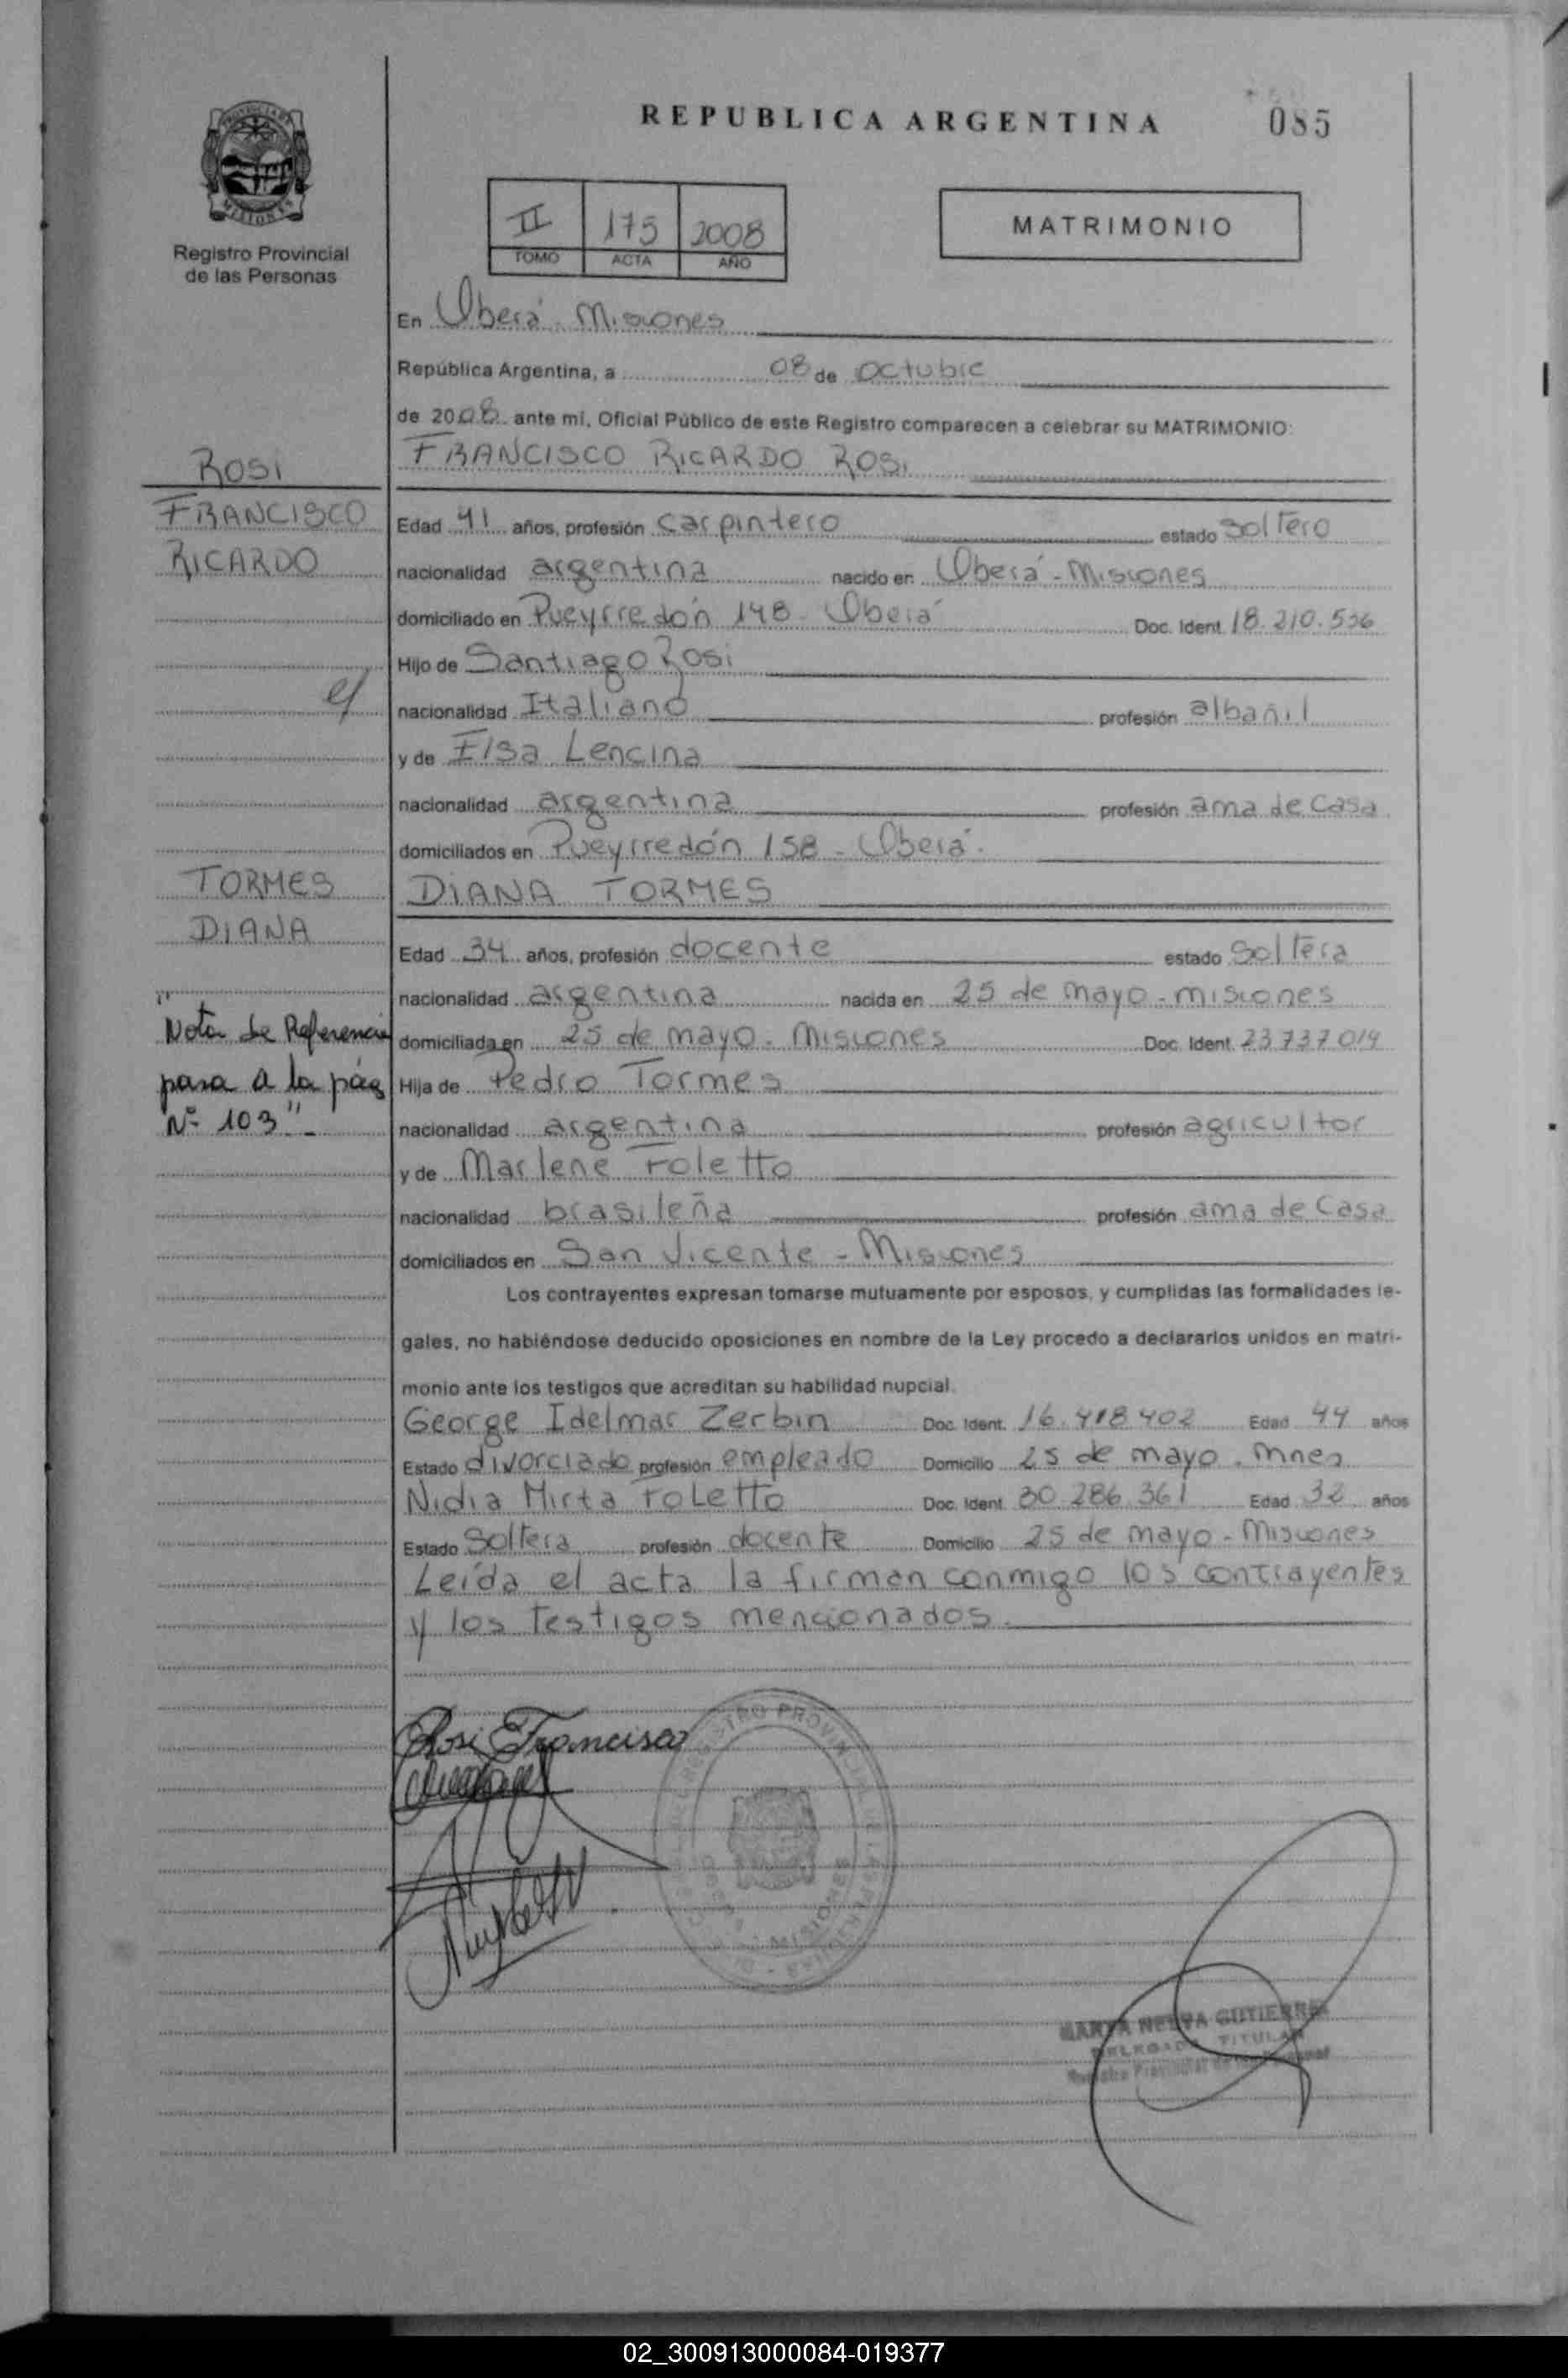 REPUBLICA ARGENTINA
085
Registro Provincial
de las Personas
II 175 2008
TOMO ACTA AÑO
MATRIMONIO
En Oberá - Misiones
República Argentina, a 08 de octubre
de 2008 ante mí, Oficial Público de este Registro comparecen a celebrar su MATRIMONIO:
FRANCISCO RICARDO ROSI
ROSI
FRANCISCO
RICARDO
Edad 41 años, profesión carpintero estado soltero
nacionalidad argentina nacido en Oberá - Misiones
domiciliado en Pueyrredón 148 - Oberá Doc. Ident. 18.210.536
Hijo de Santiago Rosi
nacionalidad Italiano profesión albañil
y de Elsa Lencina
nacionalidad argentina profesión ama de casa
domiciliados en Pueyrredón 158 - Oberá.
TORMES
DIANA
DIANA TORMES
Edad 34 años, profesión docente estado soltera
nacionalidad argentina nacida en 25 de mayo - misiones
domiciliada en 25 de mayo - Misiones Doc. Ident. 23 737 014
Hija de Pedro Tormes
nacionalidad argentina profesión agricultor
y de Marlene Foletto
nacionalidad brasileña profesión ama de casa
domiciliados en San Vicente - Misiones
"Nota de Referencia
pasa a la pág
Nº 103"
Los contrayentes expresan tomarse mutuamente por esposos, y cumplidas las formalidades le-
gales, no habiéndose deducido oposiciones en nombre de la Ley procedo a declararlos unidos en matri-
monio ante los testigos que acreditan su habilidad nupcial.
George Idelmar Zerbin Doc. Ident. 16.418.402 Edad 44 años
Estado divorciado profesión empleado Domicilio 25 de mayo. Mnes
Nidia Mirta Foletto Doc. Ident. 30 286 361 Edad 32 años
Estado Soltera profesión docente Domicilio 25 de mayo - Misiones
Leída el acta la firman conmigo los contrayentes
y los testigos mencionados.
Rosi Francisco
REGISTRO PROVINCIAL DE LAS PERSONAS
MISIONES
GUTIERREZ
TITULAR
02_300913000084-019377